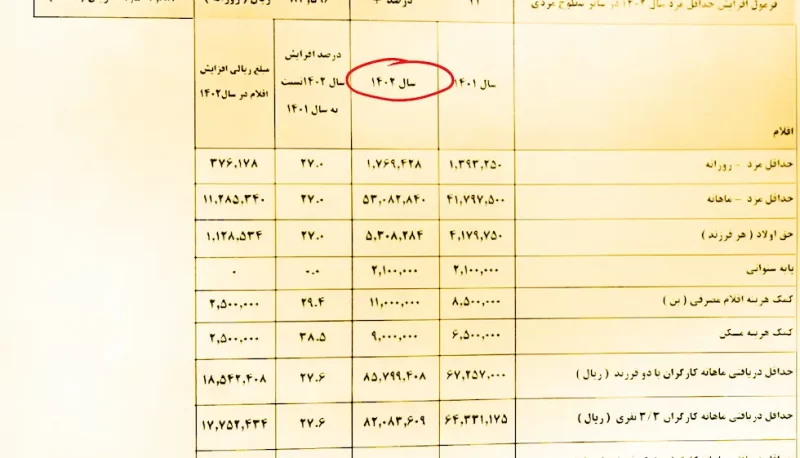 فرمول افزایش حداقل مزد سال ۱۴۰۲ در سایر سطوح مزدی ۲۱ درصد + ریال ( روزانه )
اقلام سال ۱۴۰۱ سال ۱۴۰۲ درصد افزایش سال ۱۴۰۲نسبت به سال ۱۴۰۱ مبلغ ریالی افزایش اقلام در سال۱۴۰۲
حداقل مزد - روزانه ۱,۳۹۳,۲۵۰ ۱,۷۶۹,۴۲۸ ۲۷.۰ ۳۷۶,۱۷۸
حداقل مزد - ماهانه ۴۱,۷۹۷,۵۰۰ ۵۳,۰۸۲,۸۴۰ ۲۷.۰ ۱۱,۲۸۵,۳۴۰
حق اولاد ( هر فرزند ) ۴,۱۷۹,۷۵۰ ۵,۳۰۸,۲۸۴ ۲۷.۰ ۱,۱۲۸,۵۳۴
پایه سنواتی ۲,۱۰۰,۰۰۰ ۲,۱۰۰,۰۰۰ ۰.۰ ۰
کمک هزینه اقلام مصرفی ( بن ) ۸,۵۰۰,۰۰۰ ۱۱,۰۰۰,۰۰۰ ۲۹.۴ ۲,۵۰۰,۰۰۰
کمک هزینه مسکن ۶,۵۰۰,۰۰۰ ۹,۰۰۰,۰۰۰ ۳۸.۵ ۲,۵۰۰,۰۰۰
حداقل دریافتی ماهانه کارگران با دو فرزند ( ریال ) ۶۷,۲۵۷,۰۰۰ ۸۵,۷۹۹,۴۰۸ ۲۷.۶ ۱۸,۵۴۲,۴۰۸
حداقل دریافتی ماهانه کارگران ۳/۳ نفری ( ریال ) ۶۴,۳۳۱,۱۷۵ ۸۲,۰۸۳,۶۰۹ ۲۷.۶ ۱۷,۷۵۲,۴۳۴